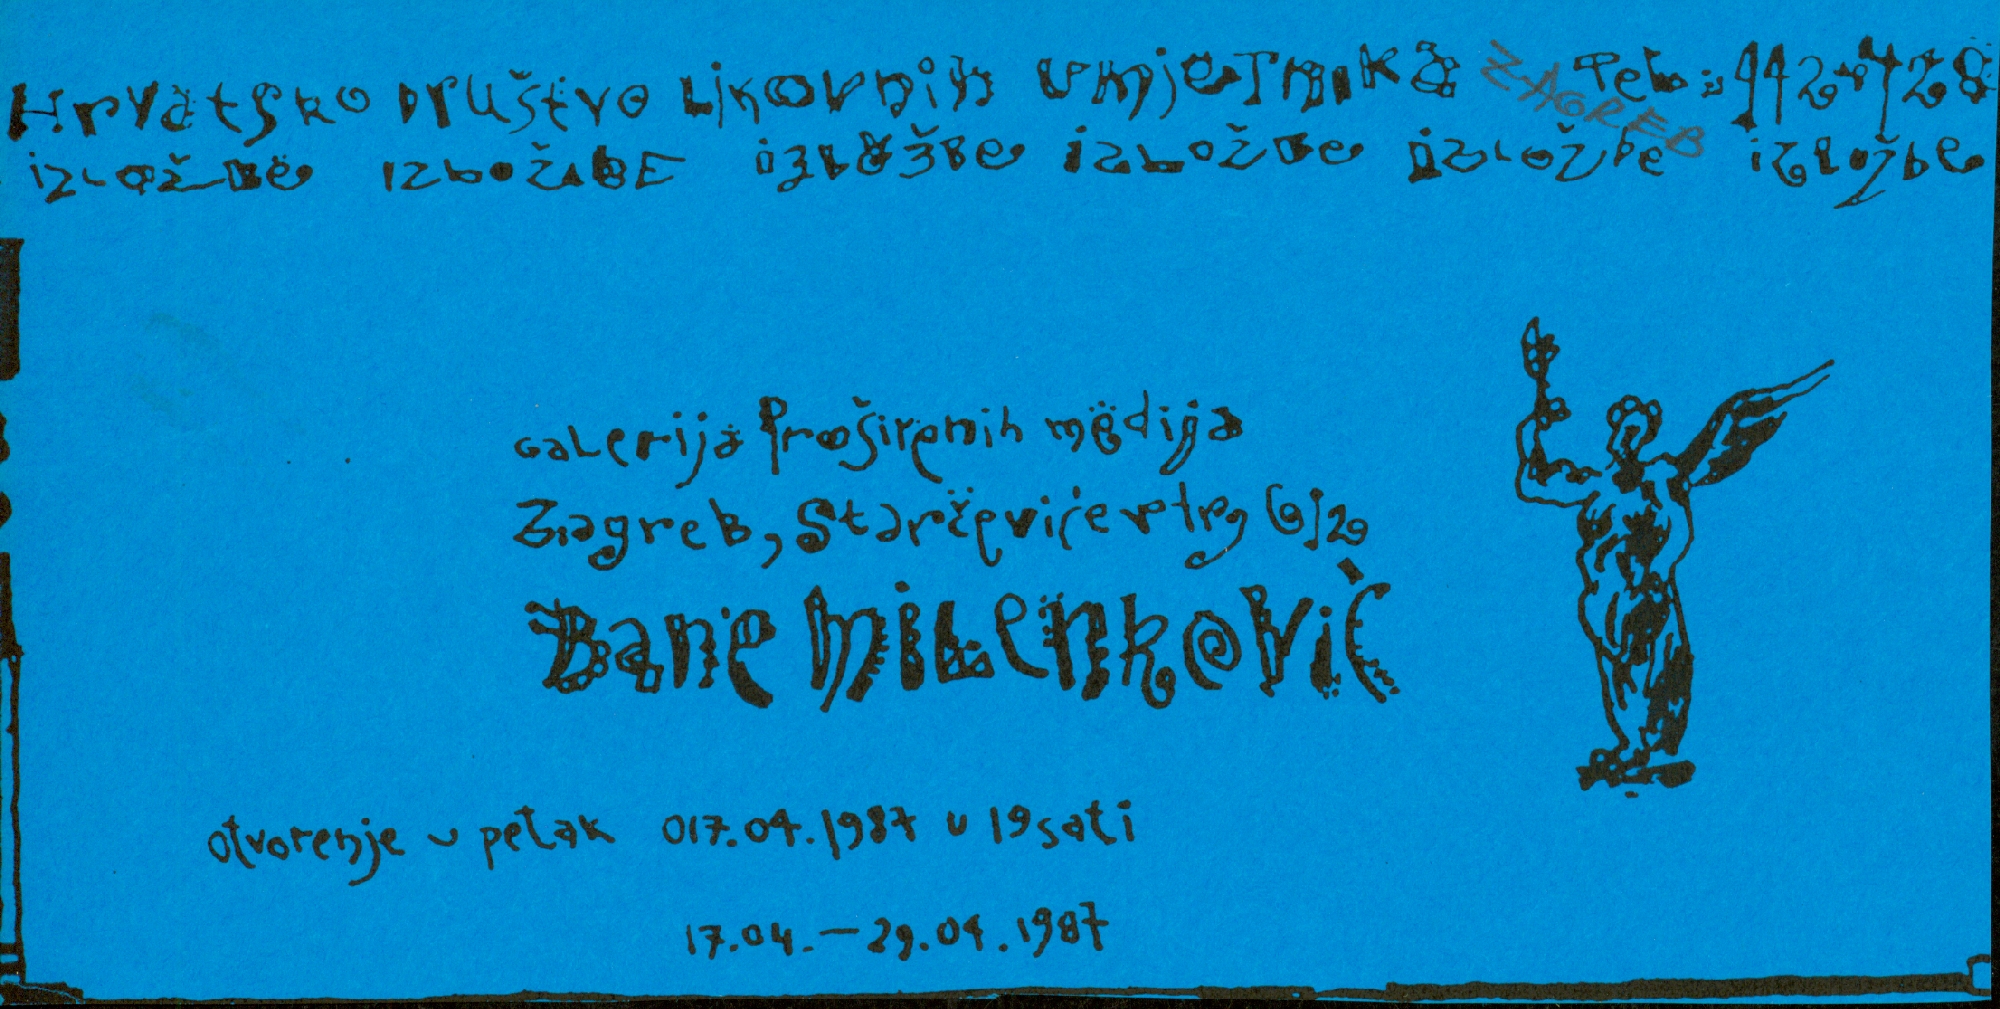 Hrvatsko Društvo Likovnih umjetnika ZAGREB Tel:
izložbe izložbe izložbe izložbe izložbe izložbe
Galerija Proširenih medija
Zagreb, Starčevićev trg 6/
Bane Milenković
otvorenje u petak 017.04.1987 u 19 sati
17.04. – 29.04.1987